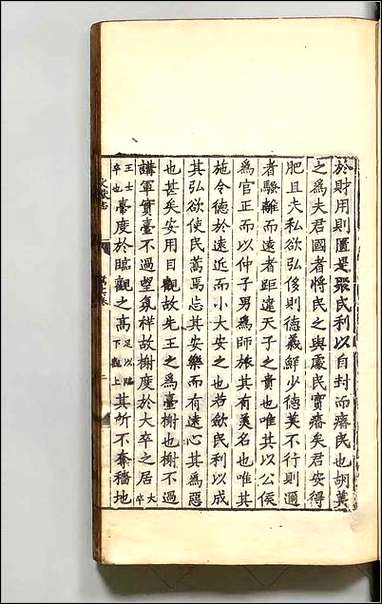 於財用則匱是聚民利以自封而瘠民也胡美
之為夫君國者將民之與處民實瘠矣君安得
肥且夫私欲弘侈則德義鮮少德美不行則邇
者騷離而遠者距違天子之貴也唯其以公侯
為官正而以仲子男為師旅其有美名也唯其
施令德於遠近而小大安之也若歛民利以成
其弘欲使民蒿焉忘其安樂而有遠心其為惡
也甚矣安用目觀故先王之為臺榭也榭不過
講軍實臺不過望氛祥故榭度於大卒之居大卒
王士卒也臺度於臨觀之高足以臨下觀上其所不奪穡地